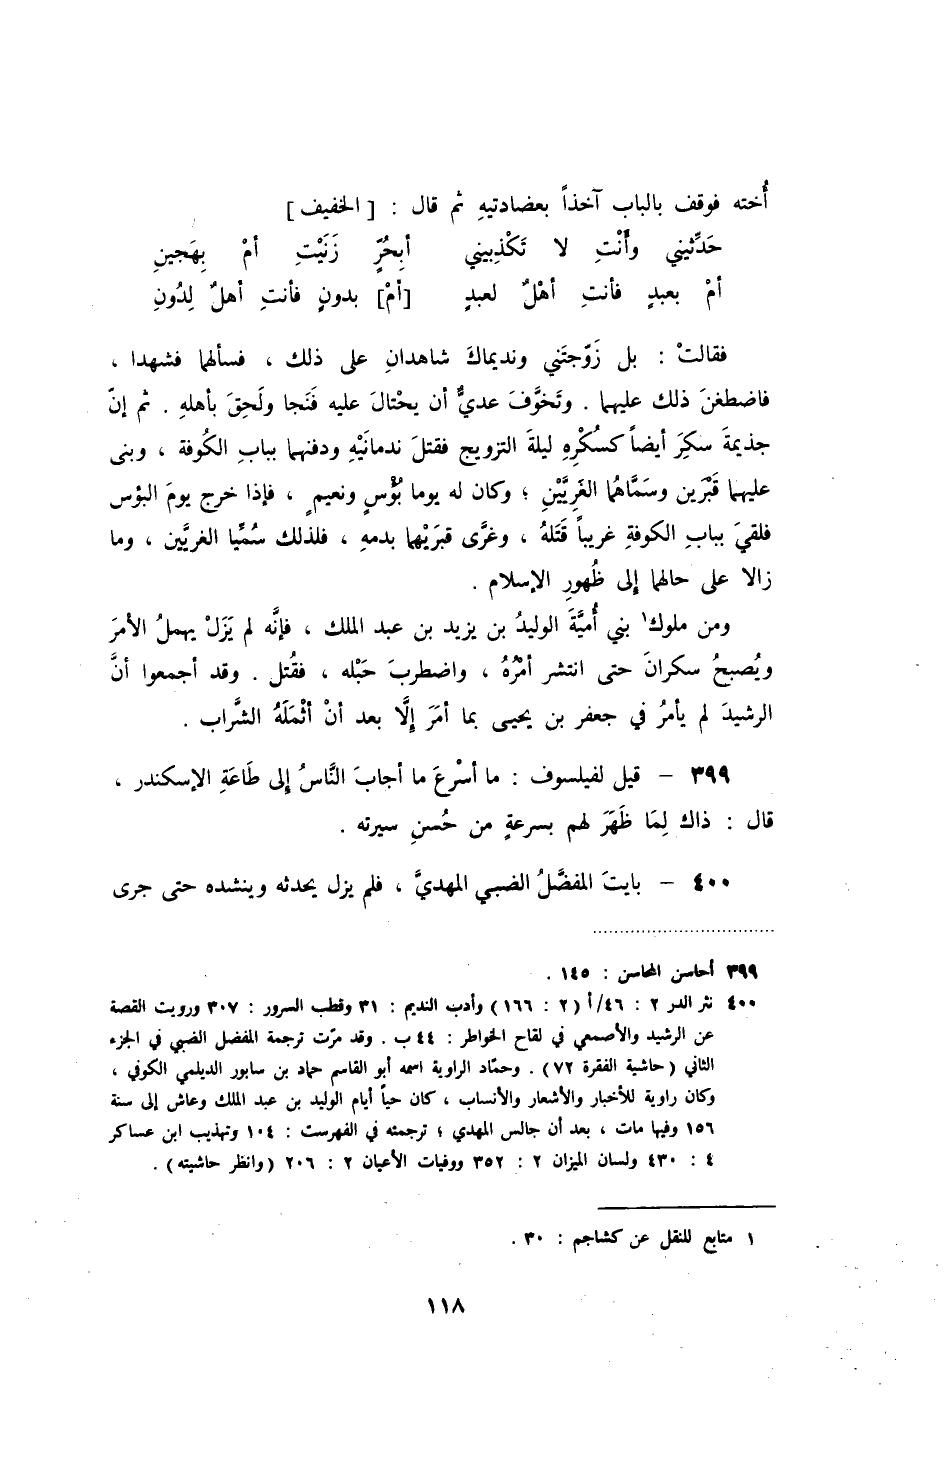 أُخته فوقف بالباب آخذاً بعضادتيهِ ثم قال : [ الخفيف ]
حَدِّثيني وأَنْتِ لا تَكْذِبيني أبِحُرٍّ زَنَيْتِ أمْ بِهَجينِ
أمْ بعبدٍ فأنتِ أهْلٌ لعبدٍ [أمْ] بدونٍ فأنتِ أهلٌ لِدُونِ
فقالتْ : بل زَوّجتَني ونديماكَ شاهدانِ على ذلك ، فسألهَا فشهدا ،
فاضطغنَ ذلك عليهما . وتَخوَّفَ عديٌّ أن يحْتالَ عليه فَنَجا ولَحِقَ بأهلهِ . ثم إنّ
جذيمةَ سكِرَ أيضاً كسُكْرِهِ ليلةَ التزويجِ فقتلَ ندمانَيْهِ ودفنهما ببابِ الكُوفة ، وبنى
عليهما قَبْرَين وسَمَّاهُما الغَرِيَّيْنِ ؛ وكان له يوما بُؤْسٍ ونعيمٍ ، فإذا خرج يومَ البؤس
فلقيَ ببابِ الكوفةِ غريباً قَتَلهُ ، وغرَّى قبرَيْهما بدمهِ ، فلذلك سُمِّيا الغريَّين ، وما
زالا على حالهما إلى ظُهورِ الإسلام .
ومن ملوك١ بني أُميَّةَ الوليدُ بن يزيد بن عبد الملك ، فإنَّه لم يَزَلْ يهملُ الأمرَ
ويُصبحُ سكرانَ حتى انتشر أمْرُهُ ، واضطربَ حَبْله ، فقُتل . وقد أجمعوا أنَّ
الرشيدَ لم يأمرُ في جعفر بن يحيى بما أمَرَ إلَّا بعد أنْ أثْمَلَهُ الشَّراب .
٣٩٩ – قيل لفيلسوف : ما أسْرعَ ما أجابَ النَّاسُ إلى طَاعَةِ الإسكندر ،
قال : ذاك لِمَا ظَهَرَ لهم بسرعةٍ من حُسنِ سيرته .
٤٠٠ – بايتَ المفضَّلُ الضبي المهديَّ ، فلم يزل يحدثه وينشده حتى جرى
٣٩٩ أحاسن المحاسن : ١٤٥ .
٤٠٠ نثر الدر ٢ : ٤٦/أ (٢ : ١٦٦) وأدب النديم : ٣١ وقطب السرور : ٣٠٧ ورويت القصة
عن الرشيد والأصمعي في لقاح الخواطر : ٤٤ ب . وقد مرّت ترجمة المفضل الضبي في الجزء
الثاني (حاشية الفقرة ٧٢) . وحمّاد الراوية اسمه أبو القاسم حماد بن سابور الديلمي الكوفي ،
وكان راوية للأخبار والأشعار والأنساب ، كان حياً أيام الوليد بن عبد الملك وعاش إلى سنة
١٥٦ وفيها مات ، بعد أن جالس المهدي ؛ ترجمته في الفهرست : ١٠٤ وتهذيب ابن عساكر
٤ : ٤٣٠ ولسان الميزان ٢ : ٣٥٢ ووفيات الأعيان ٢ : ٢٠٦ (وانظر حاشيته) .
١ متابع للنقل عن كشاجم : ٣٠ .
١١٨